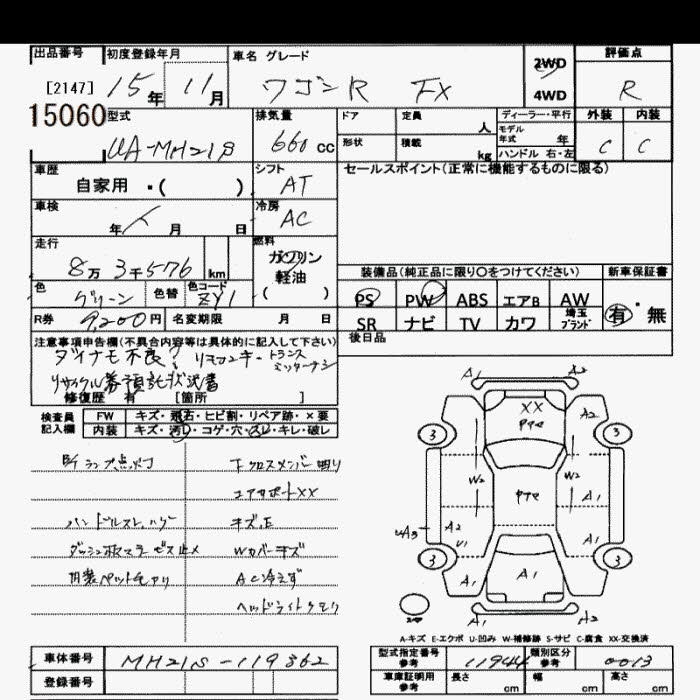 出品番号 初度登録年月 車名 グレード 評価点
[2147] 15年 11月 ワゴンR FX 2WD 4WD R
15060 型式 排気量 ドア 定員 人 ディーラー・平行 外装 内装
UA-MH21S 660cc 形状 積載 kg モデル年式 年 C C
ハンドル 右・左
車歴 シフト セールスポイント(正常に機能するものに限る)
自家用 ・( ) AT
車検 冷房
年 月 日 AC
走行 燃料
8万 3千576 km ガソリン
軽油
( )
装備品(純正品に限り〇をつけてください) 新車保証書
色 グリーン 色替 色コード ZY1
PS PW ABS エアB AW 有・無
R券 9,200円 名変期限 月 日
SR ナビ TV カワ 埼玉ブランド
注意事項申告欄(不具合内容等は具体的に記入して下さい) 後日品
ダイナモ不良? リモコンキー・トランスミッターナシ
リサイクル券預託状況書
修復歴 有 [箇所 ]
検査員 FW キズ・飛石・ヒビ割・リペア跡・×要
記入欄 内装 キズ・汚レ・コゲ・穴・スレ・キレ・破レ
ランプ点灯 下クロスメンバー
コアサポートXX
ハンドルスレ、ハゲ キズ、E
ダッシュ ビス止メ Wカバーキズ
内装ペット AC冷えず
ヘッドライトクモリ
A1 A2
XX A2
3 3
W2 W2
A2 A1
U1 A1
3 3
A1 A1 A1
A1
A-キズ E-エクボ U-凹み W-補修跡 S-サビ C-腐食 XX-交換済
車体番号 MH21S-119362
登録番号
型式指定番号 参考 11944 類別区分 参考 0013
車庫証明用 参考 長さ cm 幅 cm 高さ cm